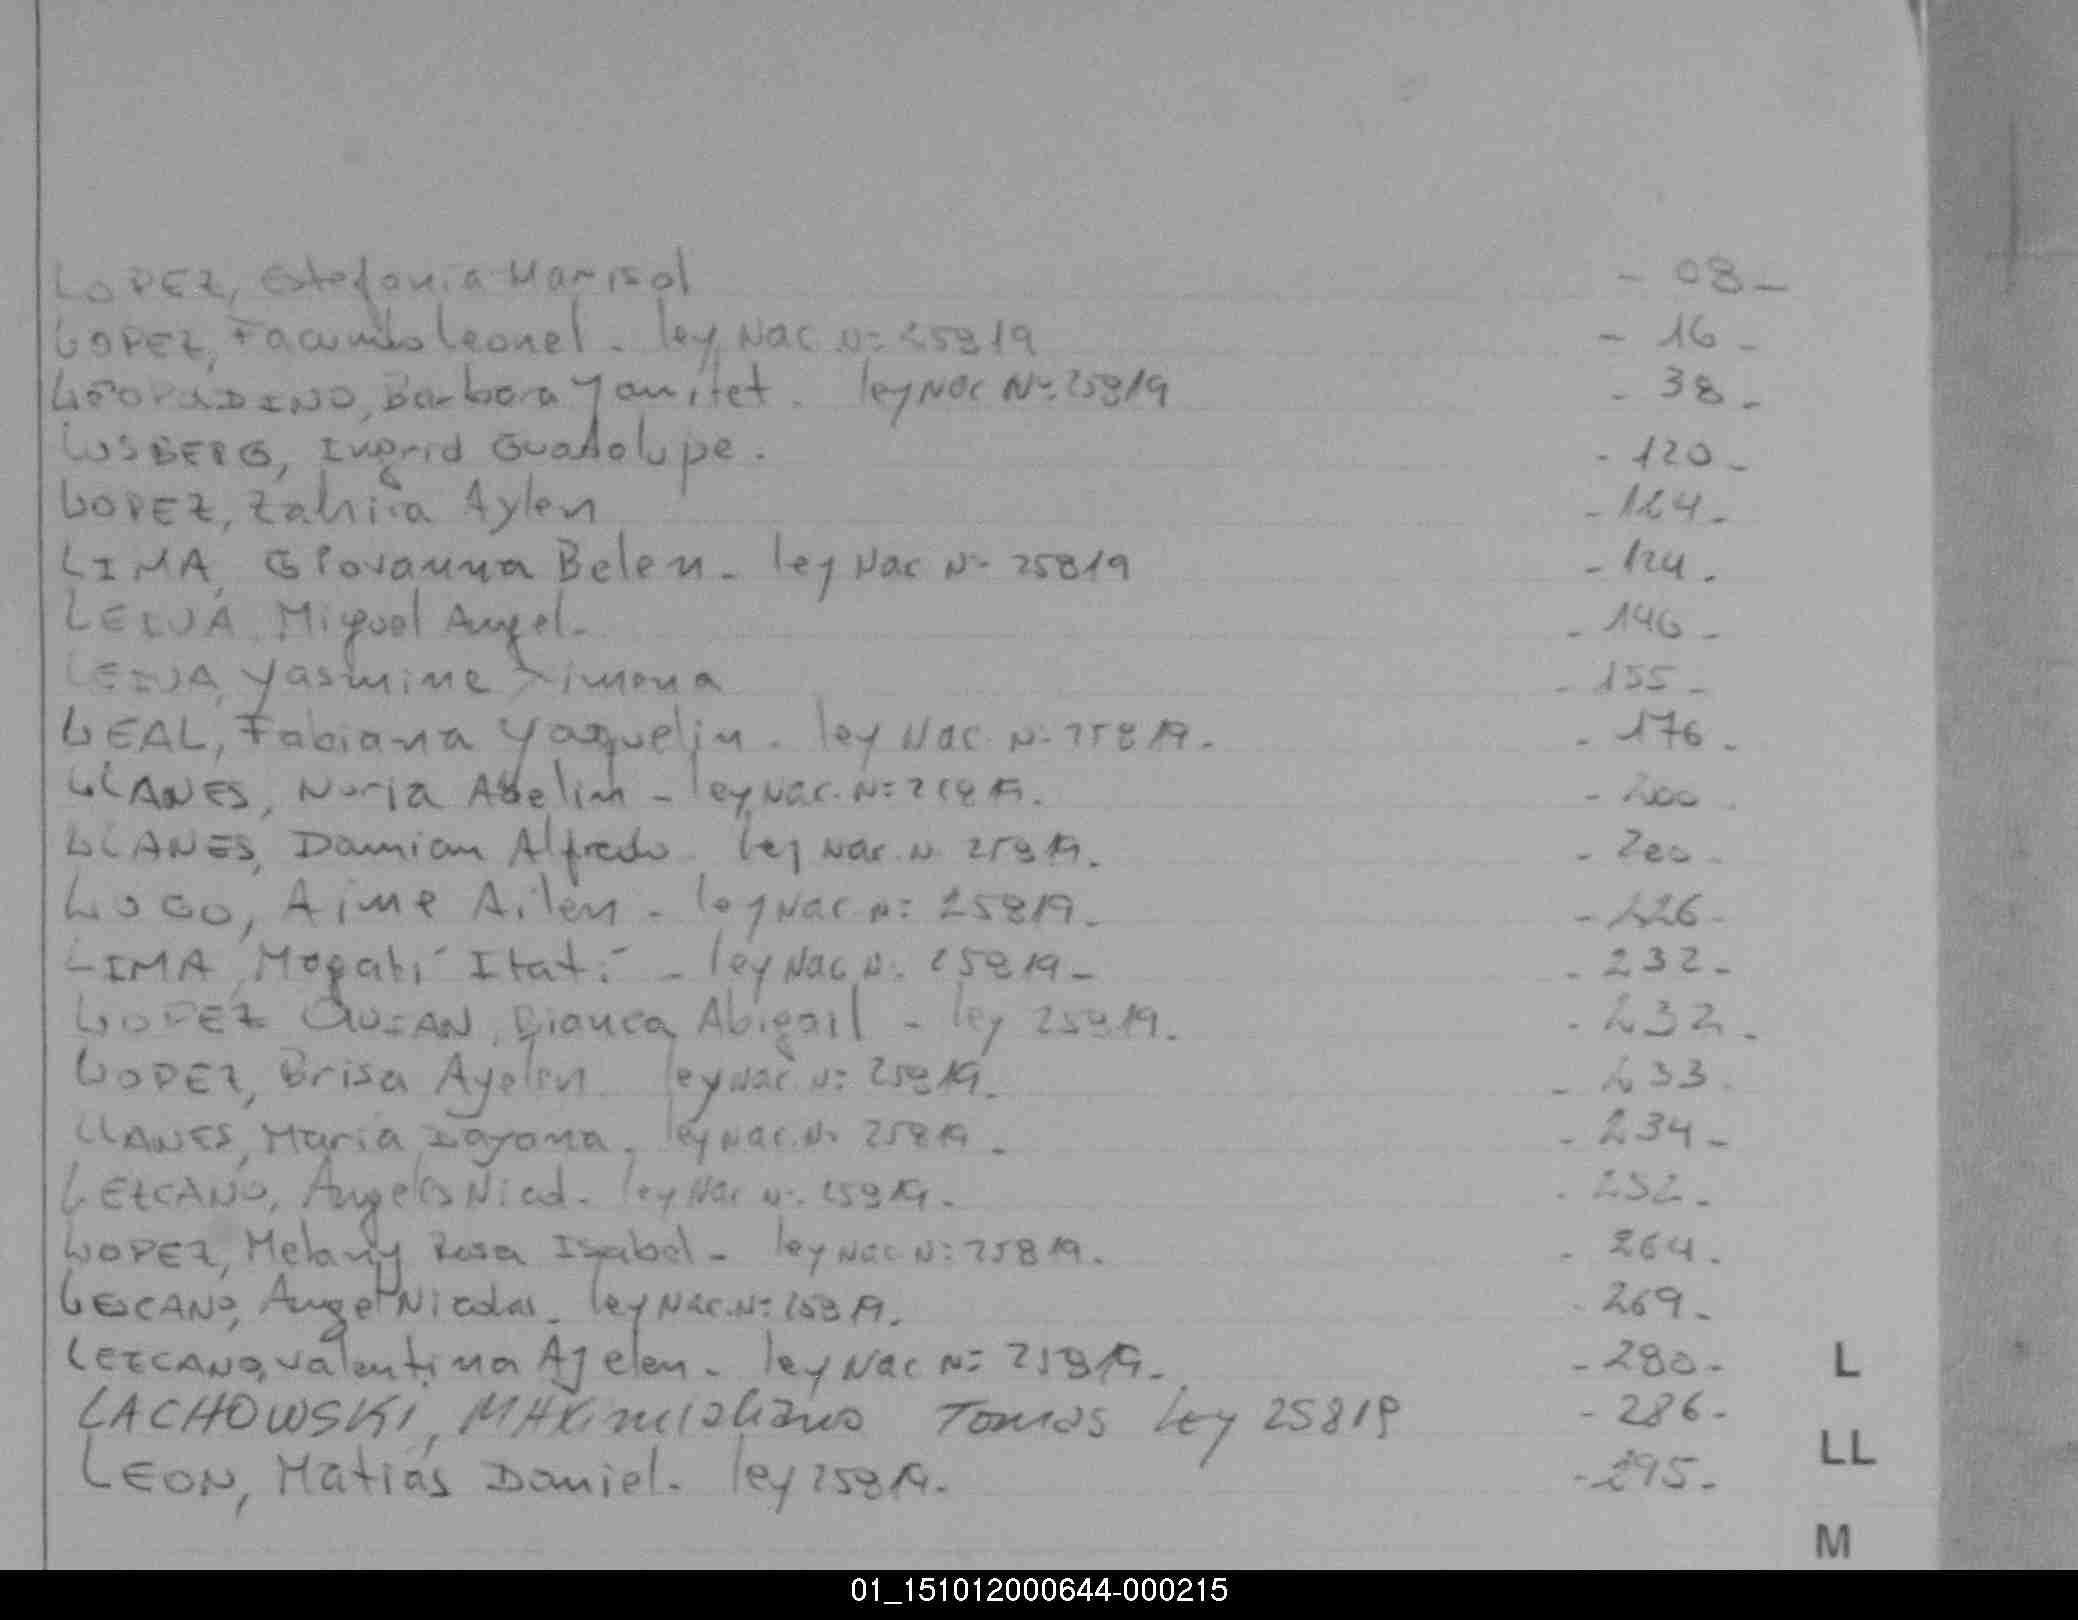 LOPEZ, Estefania Marisol - 08 -
LOPEZ, Facundo Leonel - ley Nac. N: 25819 - 16 -
Barbara Yanitet. ley Nac Nº 25819 - 38 -
LUSBERG, Ingrid Guadalupe. - 120 -
LOPEZ, Zahira Aylen - 124 -
LIMA, Giovanna Belen - ley Nac Nº 25819 - 124 -
LEIVA, Miguel Angel - - 146 -
LEIVA, Yasmine Ximena - 155 -
LEAL, Fabiana Yaquelin - ley Nac. N: 25819 - - 176 -
LLANES, Nuria Abelin - ley Nac. N: 25819. - 200 -
LLANES, Damian Alfredo - ley Nac. N. 25819 - - 200 -
LUGO, Aime Ailen - ley Nac. N: 25819 - - 226 -
LIMA, Magali Itati - ley Nac N: 25819 - - 232 -
LOPEZ Bianca Abigail - ley 25819 - - 232 -
LOPEZ, Brisa Ayelen ley Nac. N: 25819 - - 233 -
LLANES, Maria Dayana. ley Nac. N: 25819 - - 234 -
LEZCANO, Angeles - ley Nac N: 25819 - - 252 -
LOPEZ, Melany Rosa Isabel - ley Nac. N: 25819. - 264 -
LEZCANO, Angel Nicolas. ley Nac. N: 25819. - 269 -
LEZCANO, Valentina Ayelen - ley Nac N: 25819 - - 280 - L
LACHOWSKI, MAXimiliano Tomas Ley 25819 - 286 -
LL
LEON, Matias Daniel - ley 25819. - 295 -
M
01_151012000644-000215